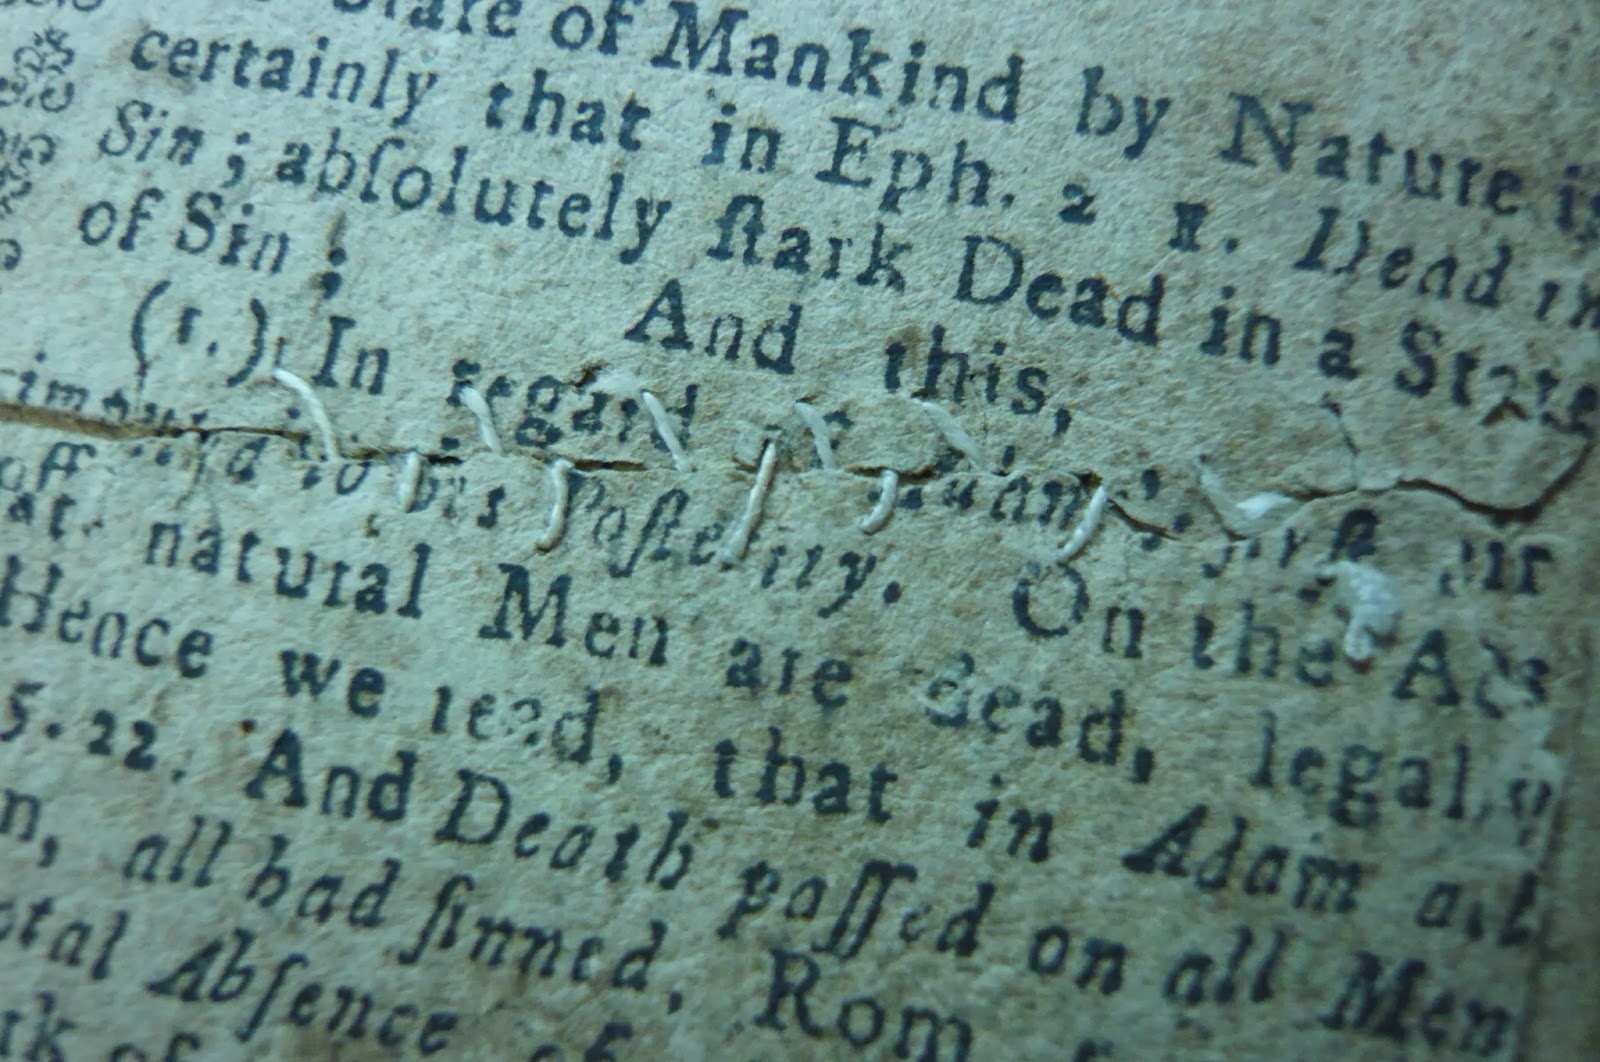 State of Mankind by Nature is
certainly that in Eph. 2 1. Dead in
Sin ; abſolutely ſtark Dead in a State
of Sin ; And this,
(1.) In regard
to his Poſterity. On the
at natural Men are dead, legally
Hence we read, that in Adam all
5.22. And Death paſſed on all Men
n, all had ſinned, Rom
otal Abſence of